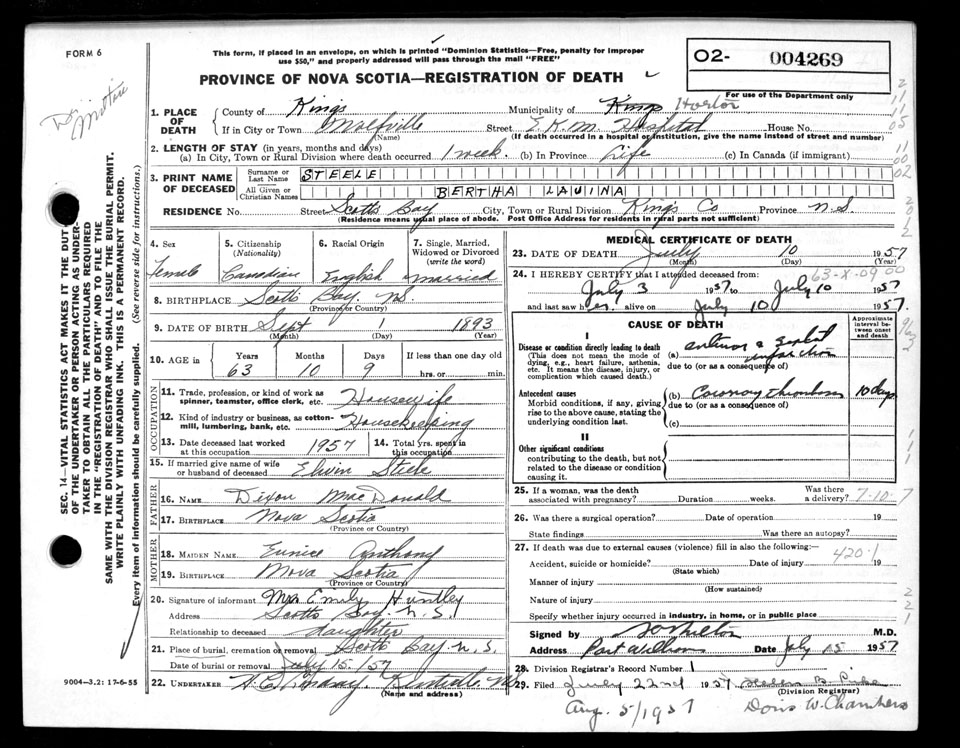 FORM 6
This form, if placed in an envelope, on which is printed "Dominion Statistics—Free, penalty for improper
use $50," and properly addressed will pass through the mail "FREE"
O2- 004269
PROVINCE OF NOVA SCOTIA—REGISTRATION OF DEATH
For use of the Department only
SEC. 14—VITAL STATISTICS ACT MAKES IT THE DUTY
OF THE UNDERTAKER OR PERSON ACTING AS UNDER-
TAKER TO OBTAIN ALL THE PARTICULARS REQUIRED
IN THE "REGISTRATION OF DEATH" AND TO FILE THE
SAME WITH THE DIVISION REGISTRAR WHO SHALL ISSUE THE BURIAL PERMIT.
WRITE PLAINLY WITH UNFADING INK. THIS IS A PERMANENT RECORD.
Every item of information should be carefully supplied. (See reverse side for instructions.)
1. PLACE OF DEATH County of Kings Municipality of Kings Horton
If in City or Town Wolfville Street E.K.M. Hospital House No.
(Name) (If death occurred in a hospital or institution, give the name instead of street and number)
2. LENGTH OF STAY (in years, months and days)
(a) In City, Town or Rural Division where death occurred 1 week. (b) In Province Life (c) In Canada (if immigrant)
3. PRINT NAME OF DECEASED Surname or Last Name STEELE
All Given or Christian Names BERTHA LAUINA
RESIDENCE No. Street Scotts Bay City, Town or Rural Division Kings Co Province N.S.
(Residence means usual place of abode. Post Office Address for residents in rural parts not sufficient)
4. Sex 5. Citizenship (Nationality) 6. Racial Origin 7. Single, Married, Widowed or Divorced (write the word)
Female Canadian English Married
8. BIRTHPLACE Scotts Bay, N.S.
(Province or Country)
9. DATE OF BIRTH Sept 1 1893
(Month) (Day) (Year)
10. AGE IN Years Months Days If less than one day old
63 10 9 hrs. or min.
OCCUPATION
11. Trade, profession, or kind of work as spinner, teamster, office clerk, etc. Housewife
12. Kind of industry or business, as cotton-mill, lumbering, bank, etc. Housekeeping
13. Date deceased last worked at this occupation 1957 14. Total yrs. spent in this occupation
15. If married give name of wife or husband of deceased Elwin Steele
FATHER
16. NAME Dixon MacDonald
17. BIRTHPLACE Nova Scotia
(Province or Country)
MOTHER
18. MAIDEN NAME Eunice Anthony
19. BIRTHPLACE Nova Scotia
(Province or Country)
20. Signature of informant Mrs Emily Huntley
Address Scotts Bay N.S.
Relationship to deceased daughter
21. Place of burial, cremation or removal Scotts Bay N.S.
Date of burial or removal July 15/57
22. UNDERTAKER Kentville NS
(Name and address)
9004-3.2: 17-6-55
MEDICAL CERTIFICATE OF DEATH
23. DATE OF DEATH July 10 1957
(Month) (Day) (Year)
24. I HEREBY CERTIFY that I attended deceased from: 63-X-09 00
July 3 1957 to July 10 1957
and last saw her alive on July 10 1957.
CAUSE OF DEATH Approximate interval between onset and death
I
Disease or condition directly leading to death
(This does not mean the mode of dying, e.g., heart failure, asthenia, etc. It means the disease, injury, or complication which caused death.)
(a) infarction
due to (or as a consequence of)
Antecedent causes
Morbid conditions, if any, giving rise to the above cause, stating the underlying condition last.
(b) Coronary thrombosis 10 days
due to (or as a consequence of)
(c)
II
Other significant conditions
contributing to the death, but not related to the disease or condition causing it.
25. If a woman, was the death associated with pregnancy? Duration weeks. Was there a delivery? 7-10-7
26. Was there a surgical operation? Date of operation 19
State findings Was there an autopsy?
27. If death was due to external causes (violence) fill in also the following:—
Accident, suicide or homicide? Date of injury 420.1 19
(State which)
Manner of injury
(How sustained)
Nature of injury
Specify whether injury occurred in industry, in home, or in public place
Signed by M.D.
Address Port Williams Date July 15 1957
28. Division Registrar's Record Number 1
29. Filed July 22nd 1957
(Division Registrar)
Aug. 5/1957 Doris W. Chambers